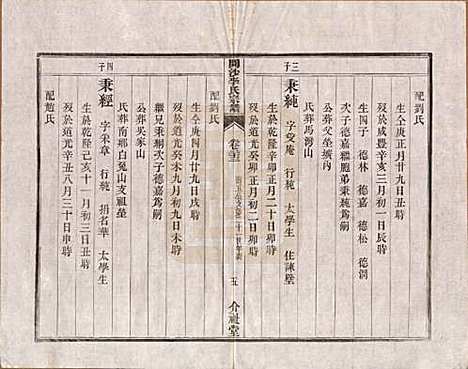 配劉氏
生仝庚正月廿九日戌時
歿於咸豐三年 月初一日辰時
四子 德林 德嘉 德松 德潤
次子德嘉繼胞弟秉純爲嗣
公葬父塋壙內
氏葬馬灣山
三子 秉純 字受庵 行純 太學生 住諫壁
生於乾隆辛卯正月二十日卯時
歿於道光癸卯 月初二日卯時
配 氏
開沙李氏宗譜
卷二十三
五
介祉堂
生仝庚四月廿九日戌時
歿於道光癸未九月初九日未時
繼胞兄秉 次子德嘉爲嗣
公葬吳家山
氏葬南鄉白兔山支祖塋
四子 秉經 字秉章 行純 捐名華 太學生
生於乾隆乙亥十一月初三日丑時
歿於道光辛丑八月三十日申時
配趙氏